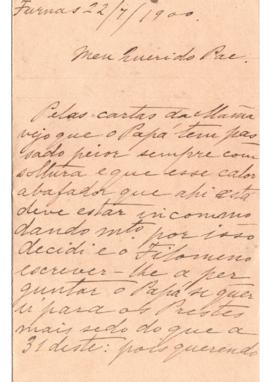 Furnas 22/7/1900.
Meu Querido Pae.
Pelas cartas da Mamã
vejo que o Papá tem pas
sado peior sempre com
soltura e que esse calor
abafador que ahi está
deve estar incommo
dando mto. por isso
decidi e o Filomeno
escrever-lhe a per
guntar o Papá se quer
ir para os Prestes
mais sedo do que a
31 deste: pois querendo